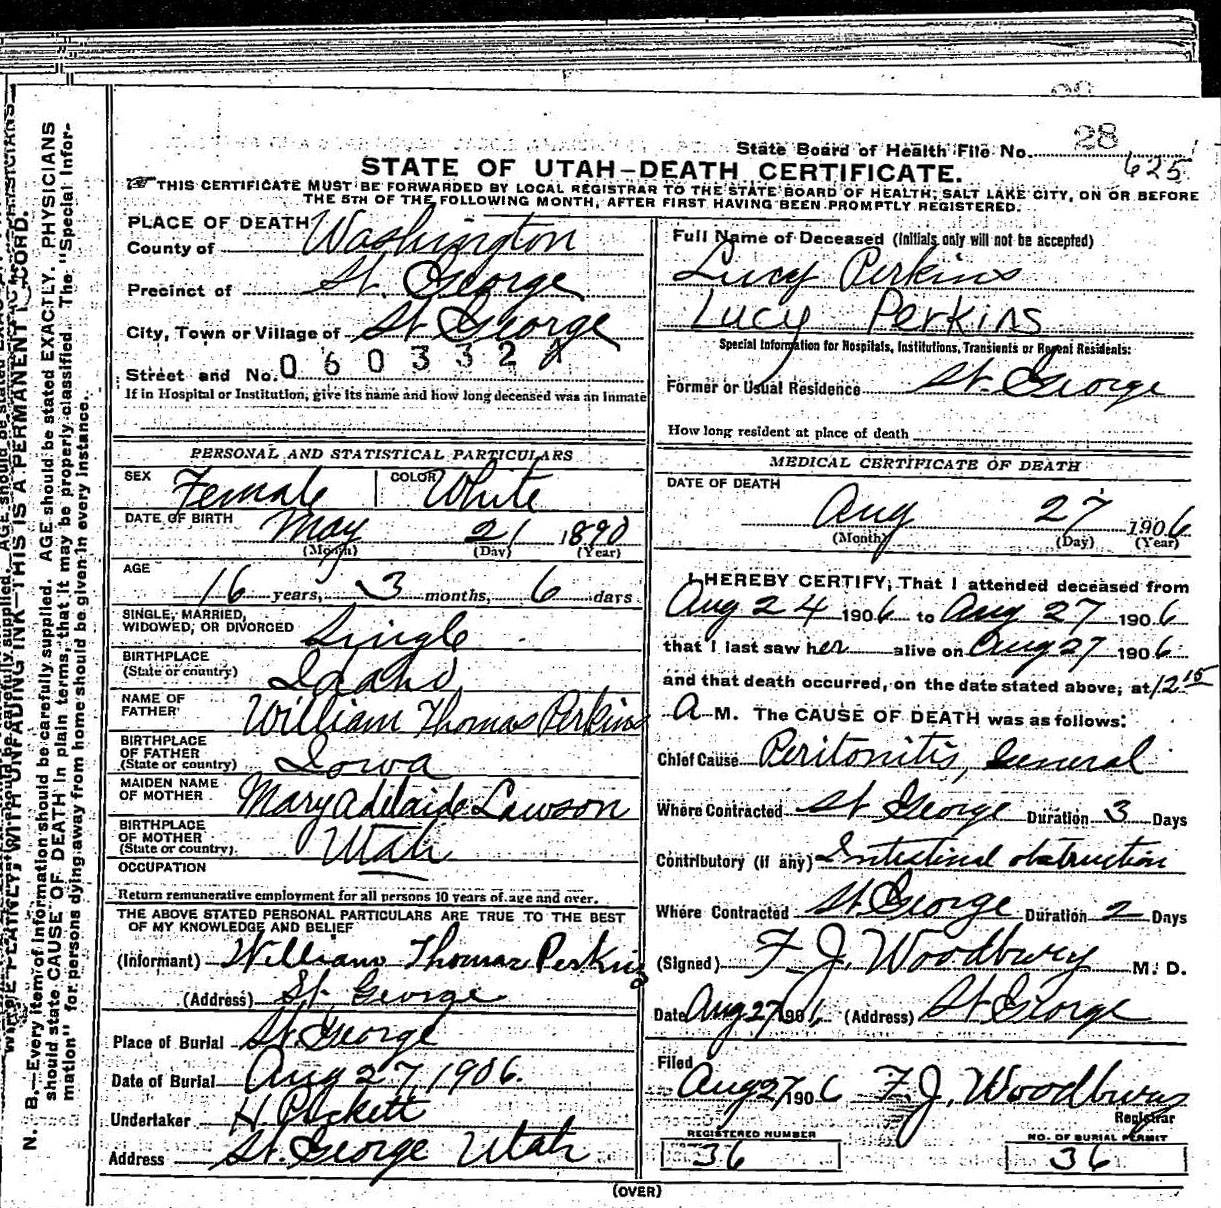 State Board of Health File No. 28
625
STATE OF UTAH—DEATH CERTIFICATE.
THIS CERTIFICATE MUST BE FORWARDED BY LOCAL REGISTRAR TO THE STATE BOARD OF HEALTH, SALT LAKE CITY, ON OR BEFORE
THE 5TH OF THE FOLLOWING MONTH, AFTER FIRST HAVING BEEN PROMPTLY REGISTERED.
PLACE OF DEATH
County of Washington
Precinct of St. George
City, Town or Village of St George
Street and No. 060332
If in Hospital or Institution, give its name and how long deceased was an inmate
PERSONAL AND STATISTICAL PARTICULARS
SEX Female COLOR White
DATE OF BIRTH May 21 1890
(Month) (Day) (Year)
AGE 16 years, 3 months, 6 days
SINGLE, MARRIED,
WIDOWED, OR DIVORCED Single
BIRTHPLACE
(State or country) Idaho
NAME OF
FATHER William Thomas Perkins
BIRTHPLACE
OF FATHER
(State or country) Iowa
MAIDEN NAME
OF MOTHER Mary Adelaide Lawson
BIRTHPLACE
OF MOTHER
(State or country) Utah
OCCUPATION
Return remunerative employment for all persons 10 years of age and over.
THE ABOVE STATED PERSONAL PARTICULARS ARE TRUE TO THE BEST
OF MY KNOWLEDGE AND BELIEF
(Informant) William Thomas Perkins
(Address) St. George
Place of Burial St. George
Date of Burial Aug 27, 1906.
Undertaker H. Pickett
Address St. George Utah
Full Name of Deceased (Initials only will not be accepted)
Lucy Perkins
Lucy Perkins
Special Information for Hospitals, Institutions, Transients or Recent Residents:
Former or Usual Residence St. George
How long resident at place of death
MEDICAL CERTIFICATE OF DEATH
DATE OF DEATH
Aug 27 1906
(Month) (Day) (Year)
I HEREBY CERTIFY, That I attended deceased from
Aug 24 1906 to Aug 27 1906
that I last saw her alive on Aug 27 1906
and that death occurred, on the date stated above, at 12 15
A M. The CAUSE OF DEATH was as follows:
Chief Cause Peritonitis, General
Where Contracted St George Duration 3 Days
Contributory (if any) Intestinal obstruction
Where Contracted St. George Duration 2 Days
(Signed) F. J. Woodbury M. D.
Date Aug 27 1906 (Address) St George
Filed
Aug 27 1906 F. J. Woodbury
Registrar
REGISTERED NUMBER
36
NO. OF BURIAL PERMIT
36
(OVER)
N. B.—Every item of information should be carefully supplied. AGE should be stated EXACTLY. PHYSICIANS
should state CAUSE OF DEATH in plain terms, that it may be properly classified. The "Special Infor-
mation" for persons dying away from home should be given in every instance.
WRITE PLAINLY, WITH UNFADING INK—THIS IS A PERMANENT RECORD.